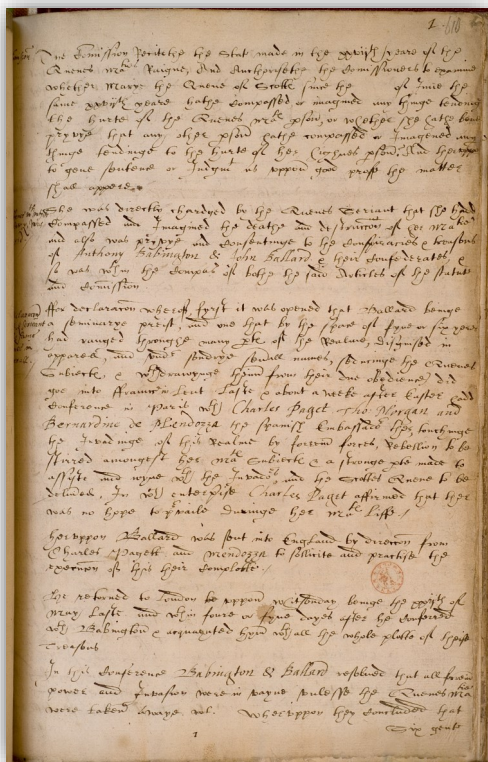 The Comission Reciteth the Statute made in the xxvijth yeare of the
Quenes Matis Raigne, And Aucthoriseth the Comissioners to examine
whether Marye the Quene of Scotts since the of June the
same xxvijth yeare hathe compassed or imagined any thinge tending
the hurte of the Quenes Matis pson, or whether she hathe bene
pryvye that any other pson hathe compassed or Imagened any
thinge tendinge to the hurte of her highnes pson. And therupon
to geve sentence or Judgmt as uppon good proff the matter
shall appere
She was directly chardged by the Quenes Serjant that she had
Compassed and Imagined the deathe and destruccon of her Matie
and also was pryvye and consentinge to the Conspiracies & treasons
of Anthony Babington & John Ballard & their Confederates, &
so was wthin the compas of bothe the said Articles of the statute
and Comission
ffor declaracon wherof fyrst it was opened that Ballard beinge
a seminarye preist, and one that by the space of fyve or six yeres
had ranged throughe many pts of the Realme, disguised in
apparell and under sondrye names, seducinge the Quenes
Subiects, & wthdrawynge them from their due obedience, did
goe into ffraunce in Lent Laste & about a weke after Easter had
Conference in Paris wth Charles Paget Tho: Morgan and
Bernardine de Mendoza the Spanish Embassador ther touchinge
the Invadinge of this Realme by forren forces, Rebellion to be
stirred amongest her Matis Subiects & a stronge ptie made to
assyste and joyne wth the Invadors and the Scottes Quene to be
delivered. In wch enterprise Charles Paget affirmed that ther
was no hope to prvaile duringe her Matis Liffe /
heruppon Ballard was sent into England by direccon from
Charles Pagett and Mendozza to sollicite and practise the
execucon of this their Complotte /
He retorned to London be uppon Witsonday beinge the xxijth of
May Laste and wthin foure or fyve dayes after he conferred
wth Babington & acquaynted hym wth all the whole plotte of theise
Treasons
In this Conference Babington & Ballard resolved that all forren
power and Invasion were in vayne unlesse the Quenes Matie
were taken awaye &c. Wheruppon they concluded that
Six gentl
1